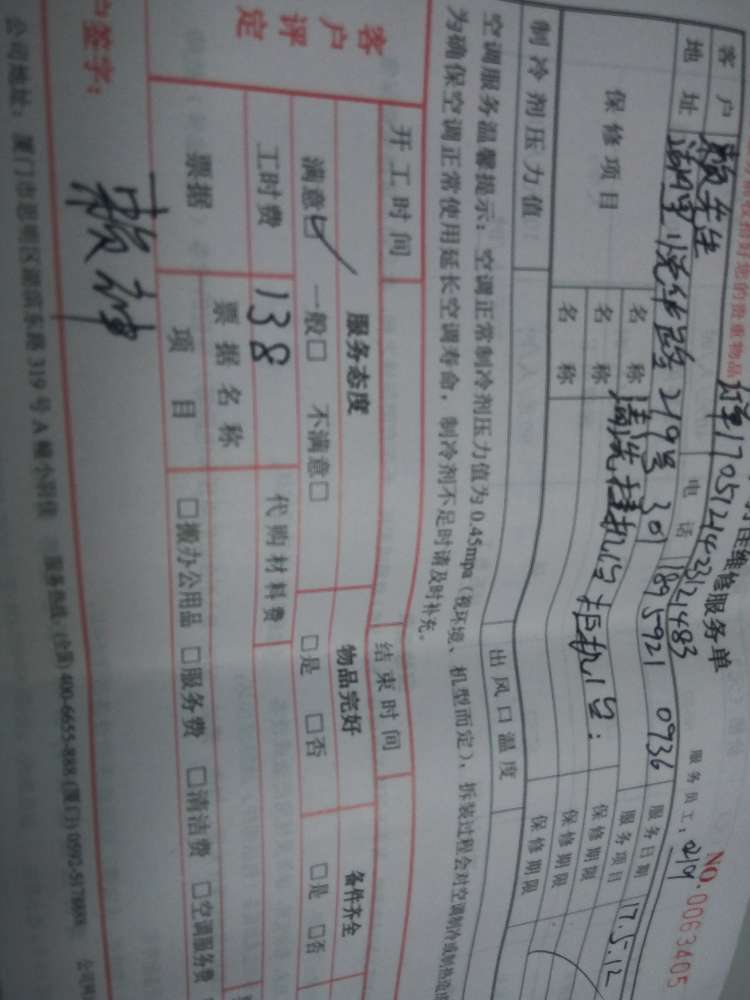 贵重物品
维修服务单
NO.0063405
订单170512442321483
服务员工：2109
客户 赖先生 电话 189 5921 0936 服务日期 17.5.12
地址 湖里 悦华路219号301 服务项目
保修项目 名称 清洗挂机1台 柜机1台. 保修期限
名称 保修期限
名称 保修期限
制冷剂压力值 出风口温度
空调服务温馨提示：空调正常制冷剂压力值为0.45mpa（视环境、机型而定），拆装过程会对空调制冷或制热造成
为确保空调正常使用延长空调寿命，制冷剂不足时请及时补充。
客户评定
开工时间 结束时间
服务态度 物品完好 备件齐全
满意☑ 一般□ 不满意□ □是 □否 □是 □否
工时费 138 代购材料费
票据 票据名称
项目 □搬办公用品 □服务费 □清洁费 □空调服务费
户签字：
公司地址：厦门市思明区湖滨东路319号A幢
服务热线：(全国)400-6655-888 (厦门)0592-